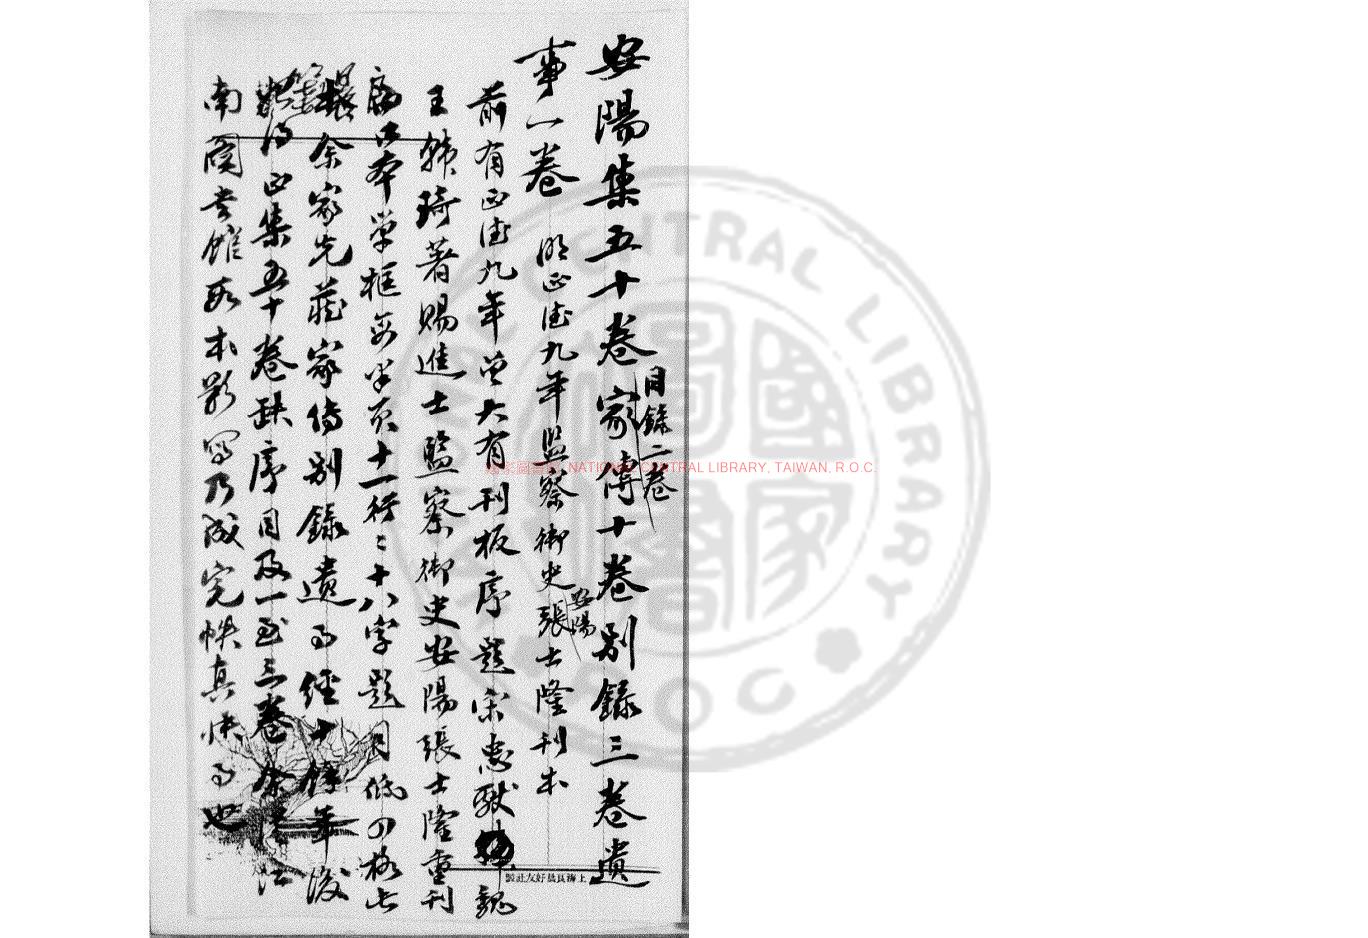 安陽集五十卷目錄二卷家傳十卷別錄三卷遺
事一卷 明正德九年監察御史安陽張士隆刊本
前有正德九年曾大有刊板序題宋忠獻韓魏
王韓琦著賜進士監察御史安陽張士隆重刊
本半框每半頁十一行行十八字題目低四格
余家先藏家傳別錄遺事經十餘年後
得正集五十卷缺序目及一至三卷余
南圖書館本影寫乃成完帙真快事也
上海良晨好友社製
國家圖書館, NATIONAL CENTRAL LIBRARY, TAIWAN, R.O.C.
NATIONAL CENTRAL LIBRARY R.O.C
國家圖書